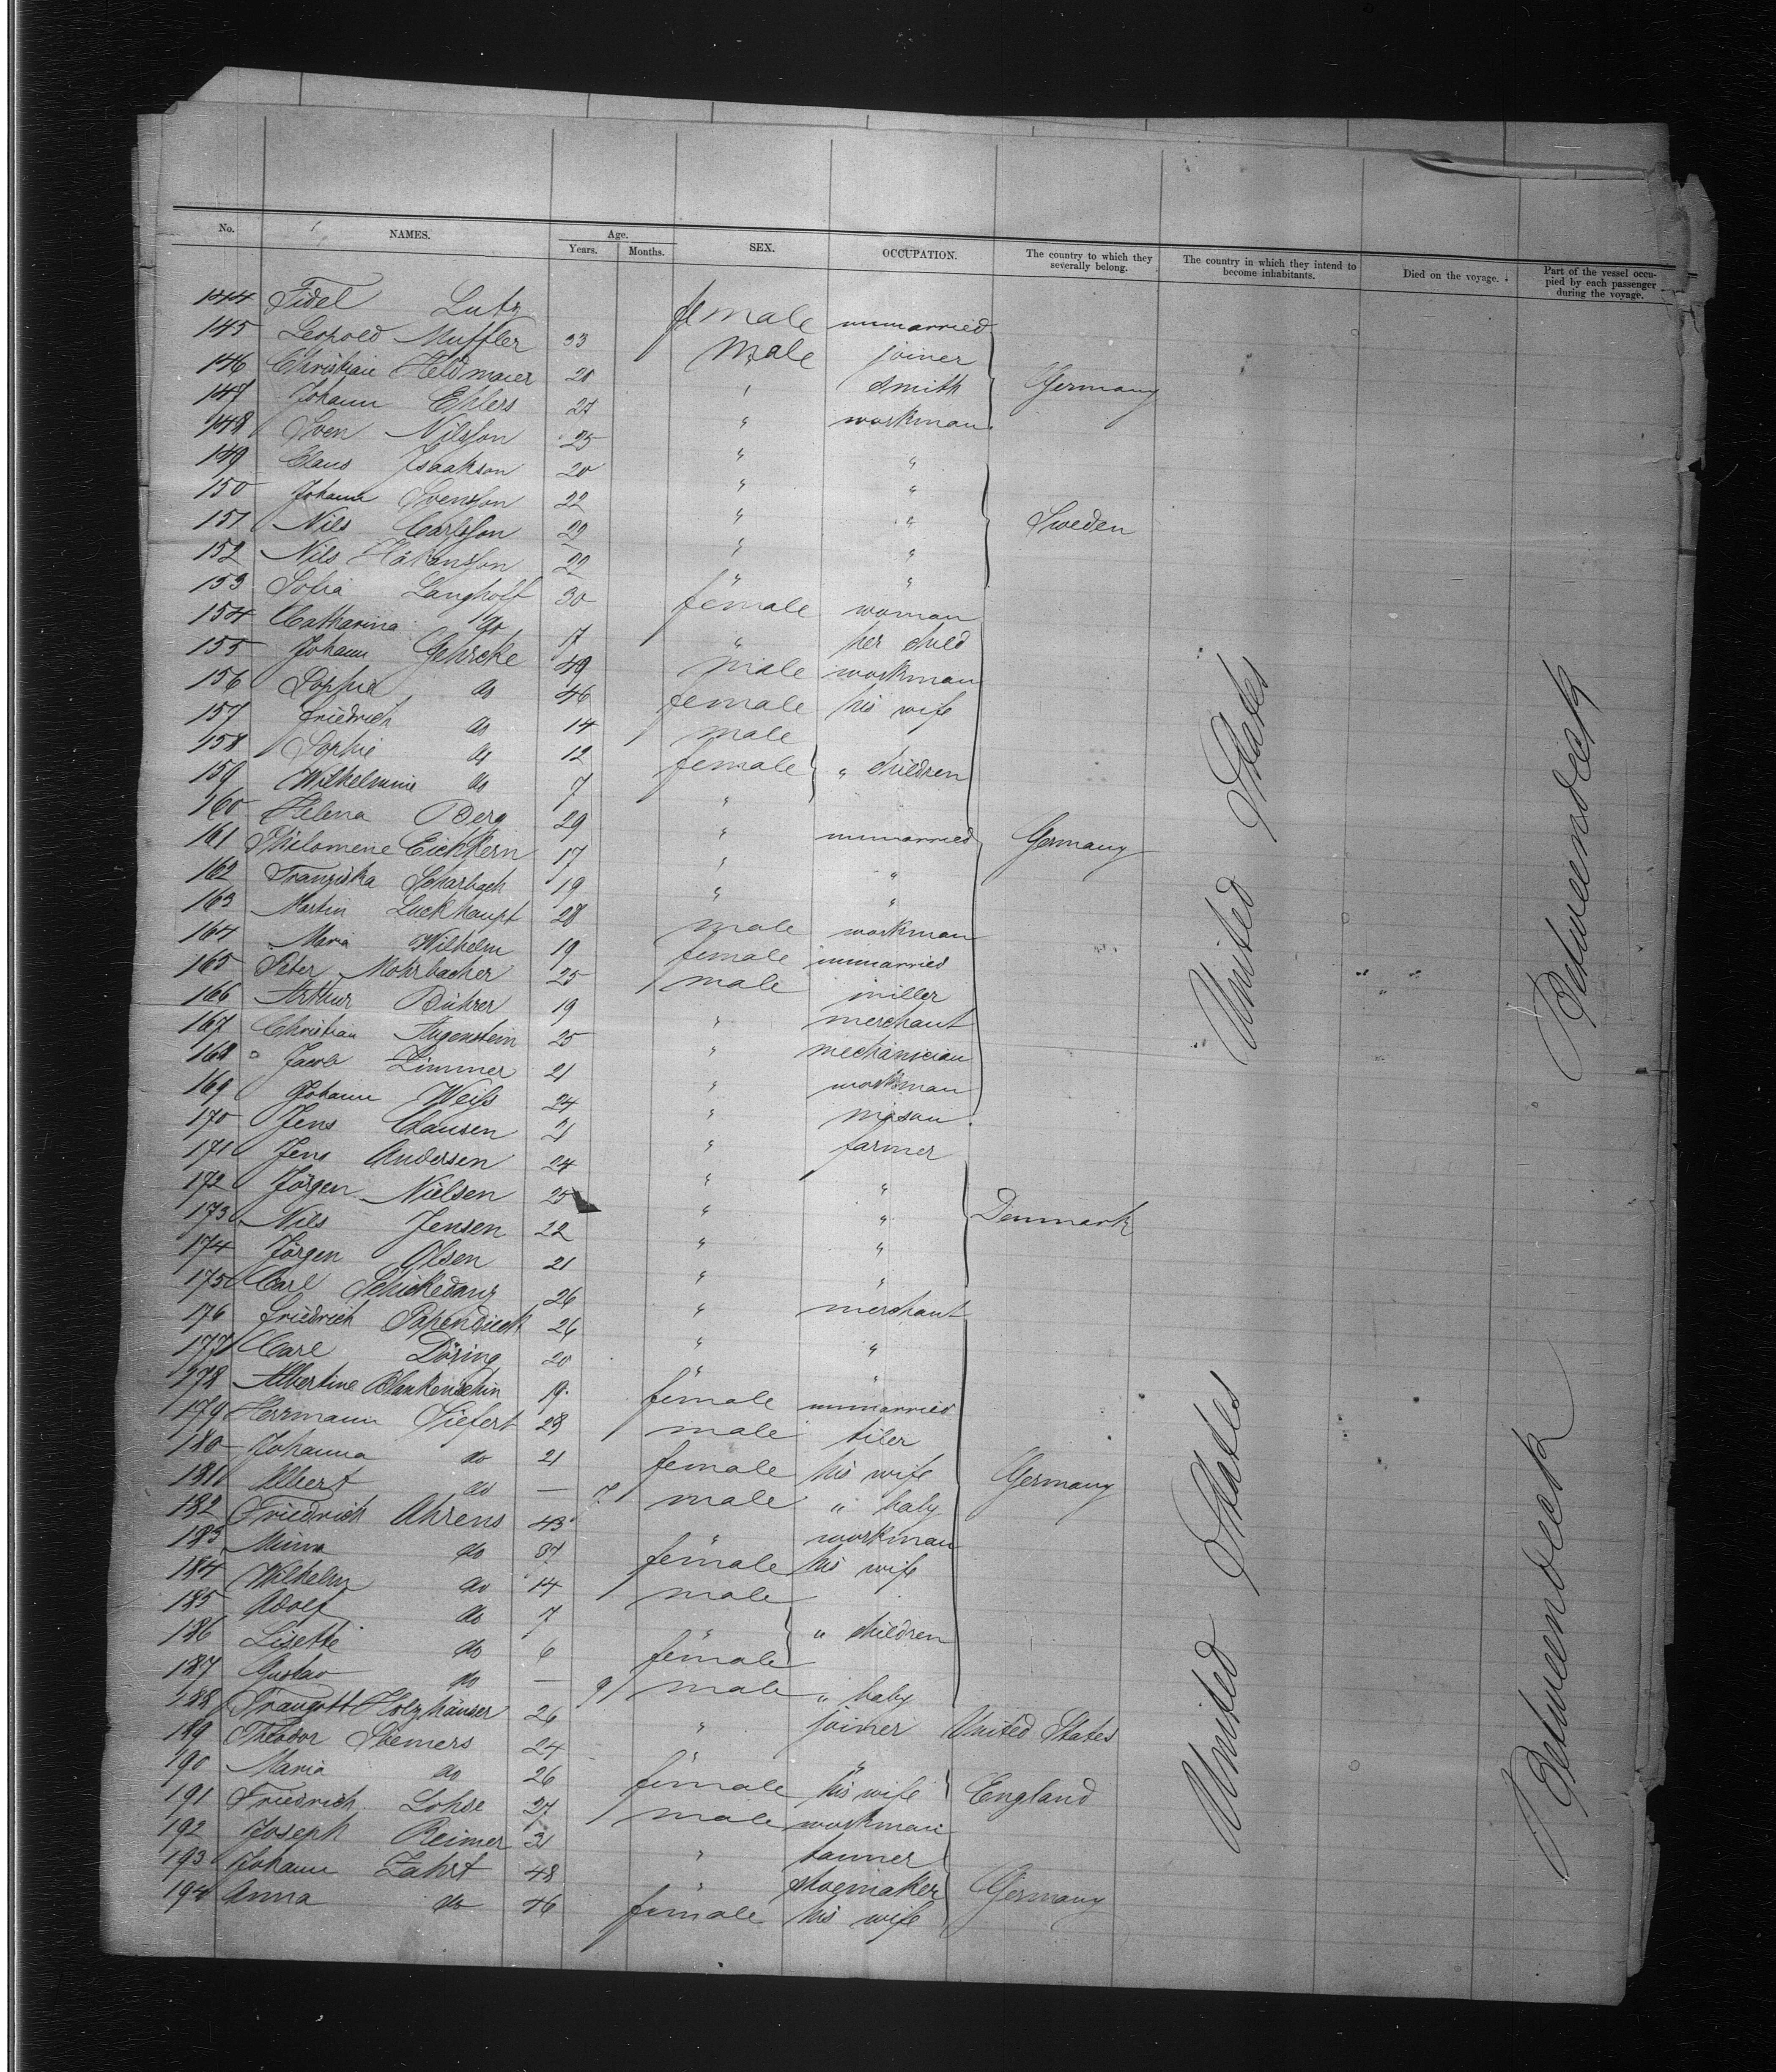 No. NAMES. Age. Years. Months. SEX. OCCUPATION. The country to which they severally belong. The country in which they intend to become inhabitants. Died on the voyage. Part of the vessel occupied by each passenger during the voyage.
144 Fidel Lutz 33 female unmarried
145 Leopold Muffler 28 male joiner
146 Christian Heldmaier 27 " smith Germany
147 Johann Ehlers 25 " workman
148 Sven Nilsson 20 " "
149 Claus Isaakson 22 " "
150 Johann Svensson 22 " " Sweden
151 Nils Carlsson 22 " "
152 Nils Håkansson 30 " "
153 Sofia Langhoff female woman
154 Catharina do 7 " her child
155 Johann Gehrcke 49 male workman
156 Sophie do 46 female his wife
157 Friedrich do 14 male
158 Sophie do 12 female " children
159 Wilhelmine do 7 "
160 Helena Berg 29 " unmarried Germany
161 Philomene Eichkern 17 " "
162 Franziska Scharbach 19 " "
163 Martin Luckhaupt 28 male workman
164 Maria Wilhelm 19 female unmarried
165 Peter Mohrbacher 25 male miller
166 Arthur Bührer 19 " merchant
167 Christian Augenstein 25 " mechanician
168 Jacob Zimmer 21 " workman
169 Johann Weiss 24 " mason
170 Jens Clausen 21 " farmer
171 Jens Andersen 24 " "
172 Jörgen Nielsen 25 " " Denmark
173 Nils Jensen 22 " "
174 Jörgen Olsen 21 " "
175 Carl Schickedanz 26 " merchant
176 Friedrich Papendieck 26 " "
177 Carl Döring 20 " "
178 Albertine Blankenschin 19 female unmarried
179 Herrmann Siefert 28 male tiler
180 Johanna do 21 female his wife Germany
181 Albert do — 7 male " baby
182 Friedrich Ahrens 43 " workman
183 Minna do 37 female his wife
184 Wilhelm do 14 male
185 Adolf do 7 " " children
186 Lisette do 6 female
187 Gustav do — 9 male " baby
188 Traugott Holzhäuser 26 " joiner United States
189 Theodor Siemers 24 " "
190 Maria do 26 female his wife England
191 Friedrich Lohse 27 male workman
192 Joseph Reimer 31 " tanner
193 Johann Zahrt 48 " shoemaker Germany
194 Anna do 46 female his wife
United States
United States
Betweendeck
Betweendeck